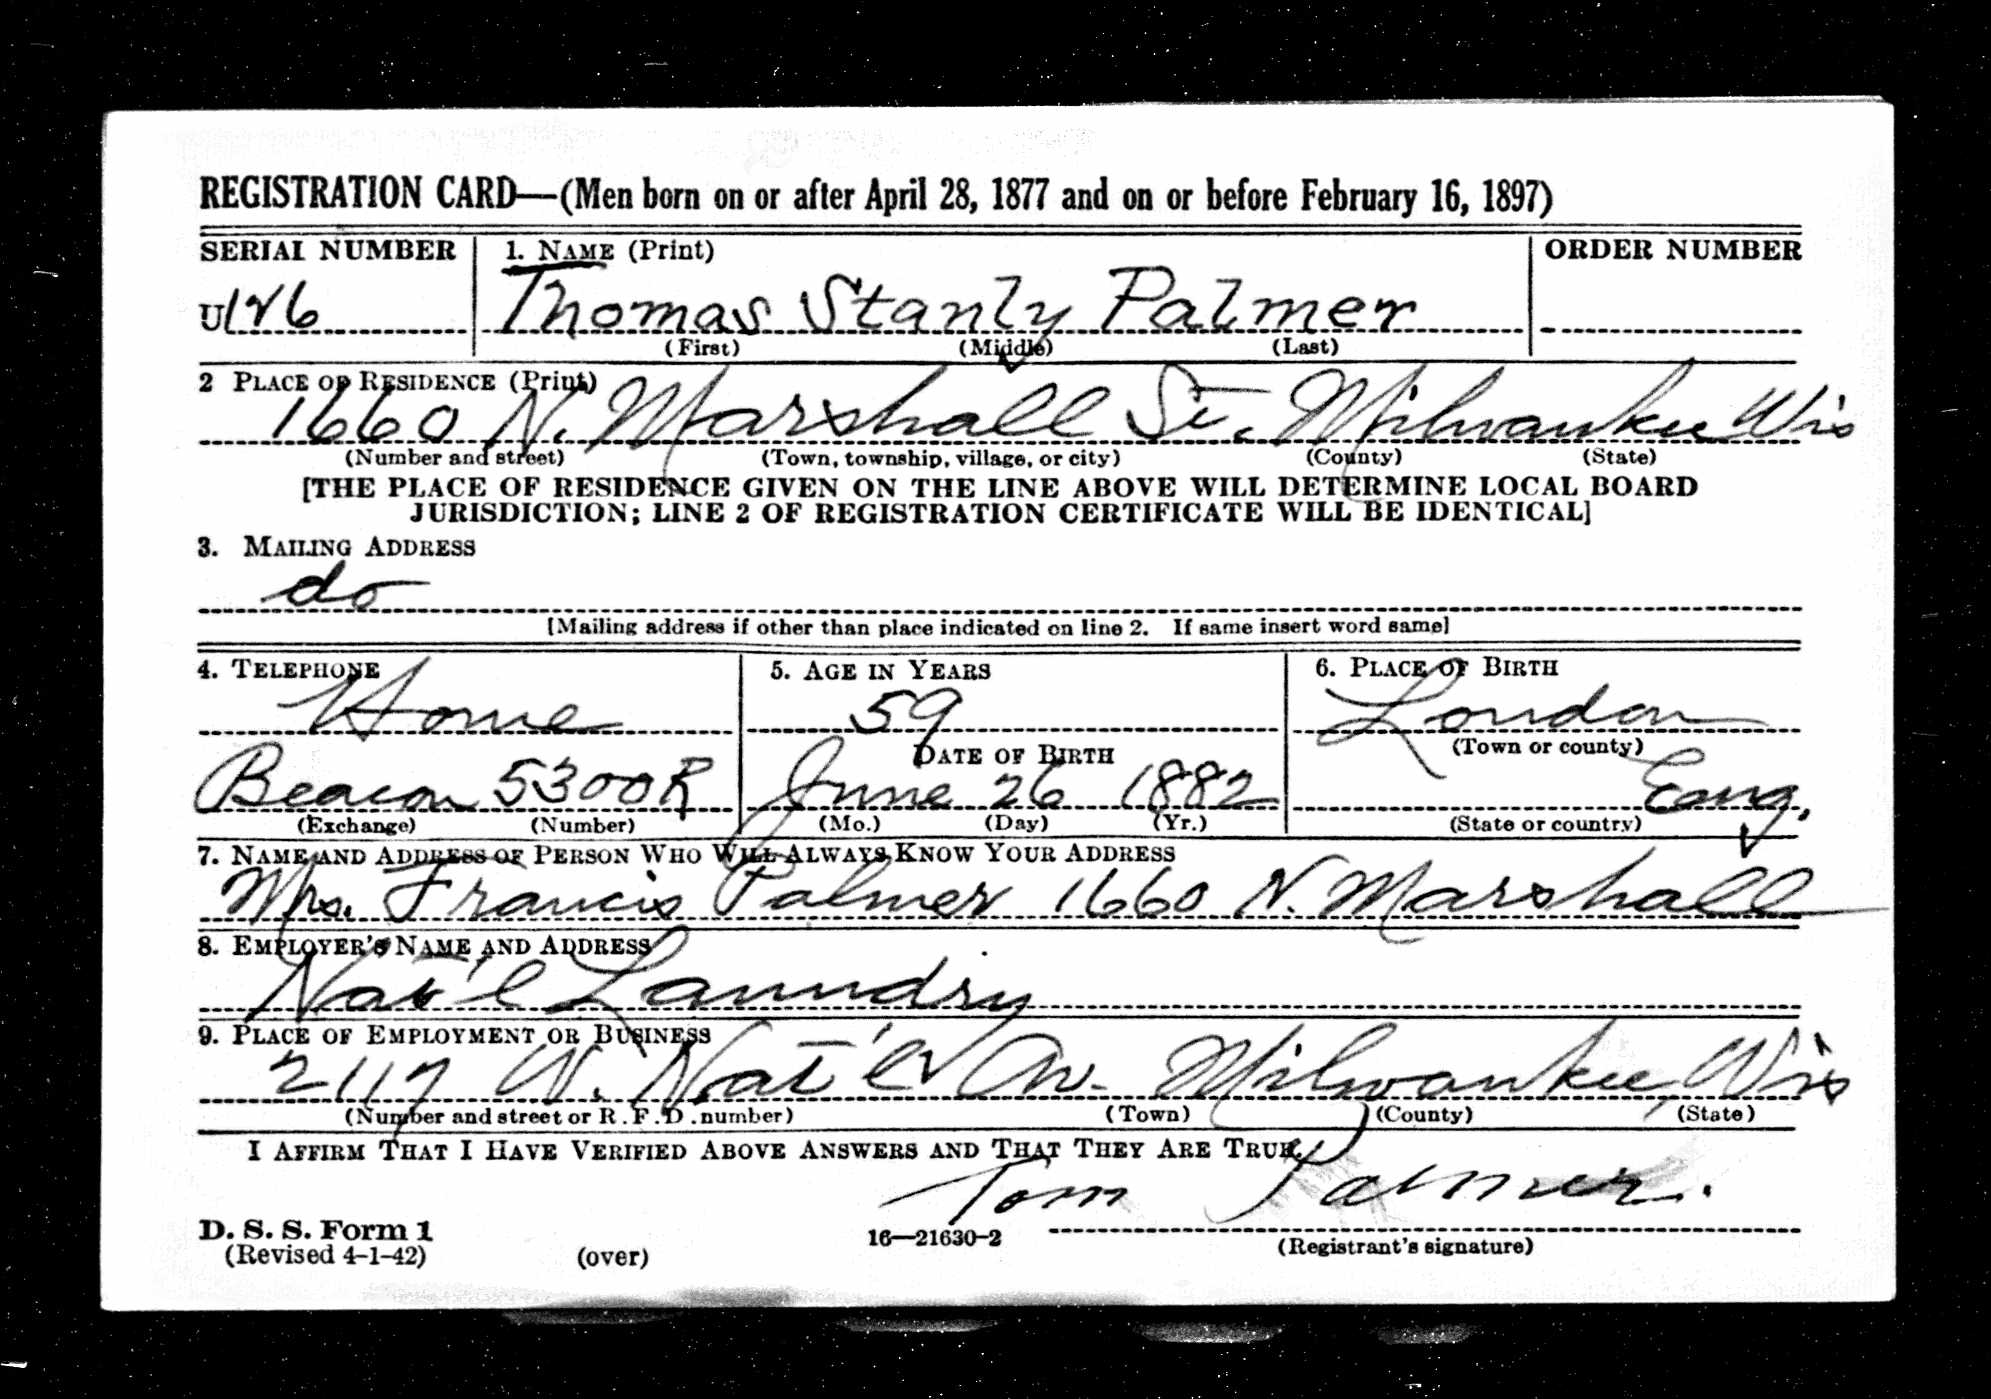 REGISTRATION CARD—(Men born on or after April 28, 1877 and on or before February 16, 1897)
SERIAL NUMBER 1. NAME (Print) ORDER NUMBER
U 126 Thomas Stanly Palmer
(First) (Middle) (Last)
2 PLACE OF RESIDENCE (Print)
1660 N. Marshall St. Milwaukee Wis
(Number and street) (Town, township, village, or city) (County) (State)
[THE PLACE OF RESIDENCE GIVEN ON THE LINE ABOVE WILL DETERMINE LOCAL BOARD
JURISDICTION; LINE 2 OF REGISTRATION CERTIFICATE WILL BE IDENTICAL]
3. MAILING ADDRESS
do
[Mailing address if other than place indicated on line 2. If same insert word same]
4. TELEPHONE 5. AGE IN YEARS 6. PLACE OF BIRTH
Home 59 London
DATE OF BIRTH (Town or county)
Beacon 5300R June 26 1882 Eng.
(Exchange) (Number) (Mo.) (Day) (Yr.) (State or country)
7. NAME AND ADDRESS OF PERSON WHO WILL ALWAYS KNOW YOUR ADDRESS
Mrs. Francis Palmer 1660 N. Marshall
8. EMPLOYER'S NAME AND ADDRESS
Nat'l Laundry
9. PLACE OF EMPLOYMENT OR BUSINESS
2117 W. Nat'l Av. Milwaukee, Wis
(Number and street or R. F. D. number) (Town) (County) (State)
I AFFIRM THAT I HAVE VERIFIED ABOVE ANSWERS AND THAT THEY ARE TRUE.
Tom Palmer.
D. S. S. Form 1
(Revised 4-1-42) (over) 16—21630-2 (Registrant's signature)